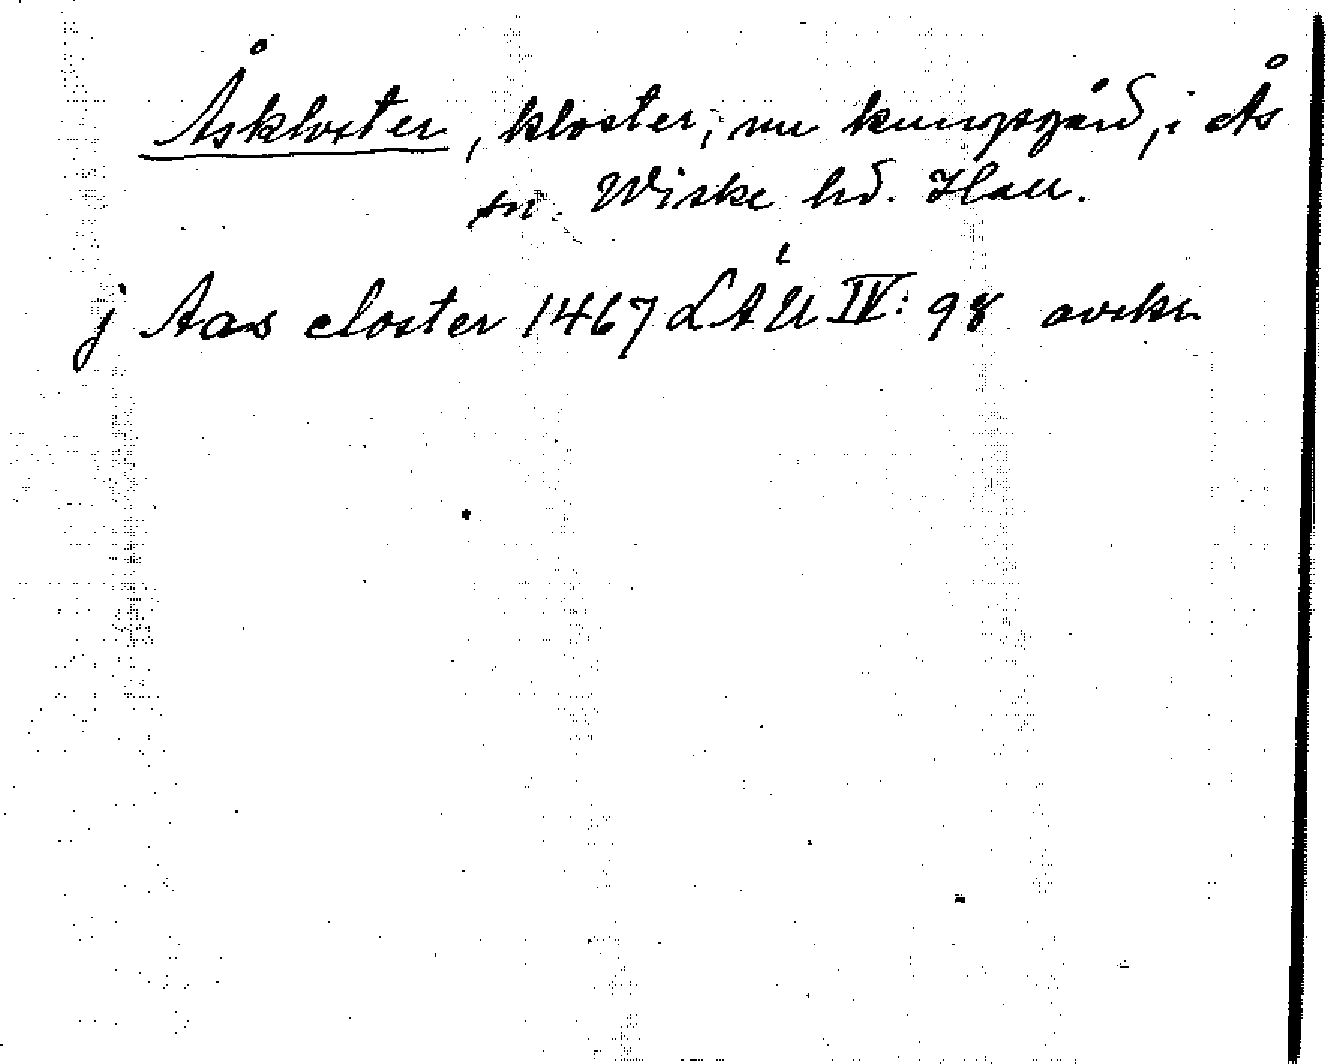 Åskloster, kloster, nu kungsgård, i Ås
sn. Wiske hd. Hall.
j Aas closter 1467 LÄU IV: 98 avskr